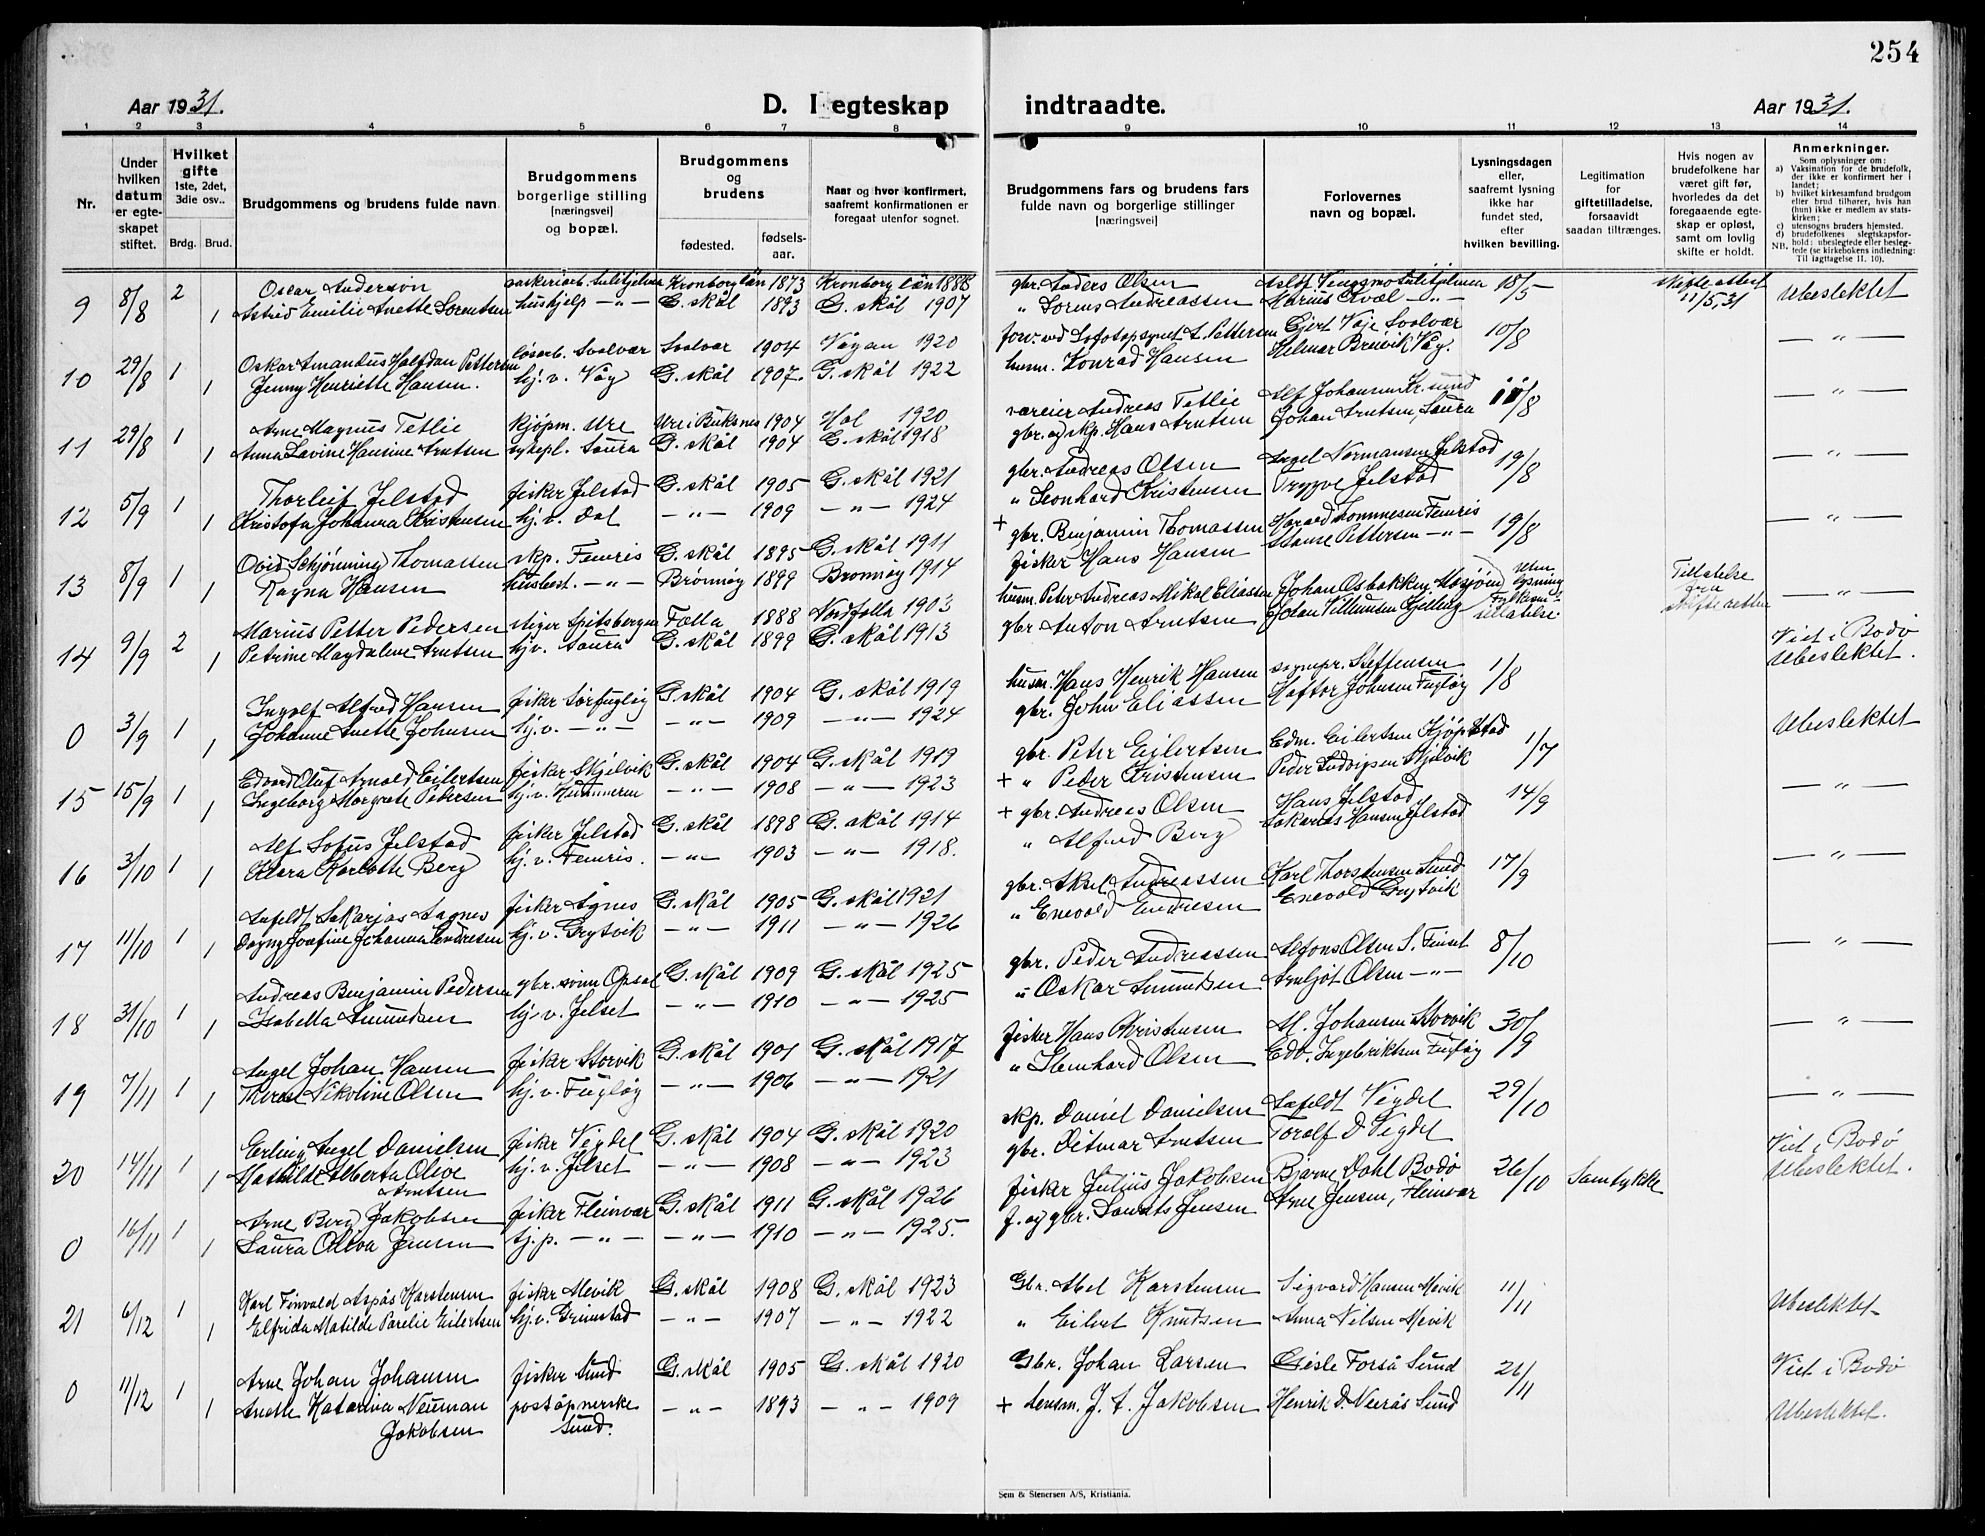 254
Aar 1931.
D. I egteskap indtraadte.
Aar 1931.
1 2 3 4 5 6 7 8 9 10 11 12 13 14
Nr.
Under hvilken datum er egteskapet stiftet.
Hvilket gifte 1ste, 2det, 3die osv..
Brdg. Brud.
Brudgommens og brudens fulde navn
Brudgommens borgerlige stilling [næringsvei] og bopæl.
Brudgommens og brudens
fødested.
fødselsaar.
Naar og hvor konfirmert, saafremt konfirmationen er foregaat utenfor sognet.
Brudgommens fars og brudens fars fulde navn og borgerlige stillinger [næringsvei]
Forlovernes navn og bopæl.
Lysningsdagen eller, saafremt lysning ikke har fundet sted, efter hvilken bevilling.
Legitimation for giftetilladelse, forsaavidt saadan tiltrænges.
Hvis nogen av brudefolkene har været gift før, hvorledes da det foregaaende egteskap er opløst, samt om lovlig skifte er holdt.
Anmerkninger.
Som oplysninger om:
a) Vaksination for de brudefolk, der ikke er konfirmert her i landet;
b) hvilket kirkesamfund brudgom eller brud tilhører, hvis han (hun) ikke er medlem av statskirken;
c) utensogns bruders hjemsted.
d) brudefolkenes slegtskapsforhold: ubeslegtede eller beslegtede (se kirkebokens indledning: NB. Til iagttagelse II, 10).
Oscar Anderson Sulitjelma Kronborg län 1873 Kronborg län 1888 gbr. Anders Olsen Sulitjelma 18/5
9 8/8 2 1 Astrid Emilie Anette Sorentsen hushjelp -"- G. skål 1893 G. skål 1907 " Sorens Andreassen Marius Kvæl -"- 11/5,31 Ubeslektet
Oskar Amandus Halfdan Pettersen løsarb. Svolvær Svolvær 1904 Vågan 1920 Pettersen Ejert Vaje Svolvær 10/8 -"-
10 29/8 1 1 Jenny Henriette Hansen. hj. v. Våg G. skål 1907. G. skål 1922 husm. Konrad Hansen Hilmar Breivik Våg.
Arne Magnus Tetlie kjøpm. Ure Ure i Buksnes 1904 Hol 1920 væreier Andreas Tetlie Alf Johansen Kr. sund 11/8 -"-
11 29/8 1 1 Anna Lavine Hansine Arntsen sykepl. Saura G. skål 1904 G. skål 1918 gbr. og skp. Hans Arntsen Johan Arntsen, Saura
Thorleif Jelstad fisker Jelstad G. skål 1905 G. skål 1921 gbr. Andreas Olsen Angel Normansen Jelstad 19/8 -"-
12 5/9 1 1 Kristofa Johanna Kristensen hj. v. Dal -"- 1909 -"- 1924 " Leonhard Kristensen Tryggve Jelstad
Ovid Schjønning Thomassen skp. Femris G. skål 1895 G. skål 1911 + gbr. Benjamin Thomassen Harald Femris 19/8 -"-
13 8/9 1 1 Ragna Hansen husbest. -"- Brønnøy 1899 Brønnøy 1914 fisker Hans Hansen Hanse Pettersen -"-
Marius Petter Pedersen stiger Spitsbergen Følla 1888 Nordfolla 1903 husm. Peter Andreas Mikal Eliassen Johan Osbakken Mosjøen Uten lysning Tillatelse fra skifteretten -"-
14 9/9 2 1 Petrine Magdalene Arntsen hj. v. Saura G. skål 1899 G. skål 1913 gbr Anton Arntsen Johan Villumsen Gjelling tillatelse
Ingolf Alfred Hansen fisker Sørfugløy G. skål 1904 G. skål 1919 husm. Hans Henrik Hansen sognepr. Steffensen 1/8 Viet i Bodø Ubeslektet.
0 3/9 1 1 Johanne Anette Johnsen hj. v. -"- -"- 1909 -"- 1924 gbr. John Eliassen Haftor Johnsen Fugløy
Edvard Oluf Arnold Eilertsen fisker Skjelvik G. skål 1904 G. skål 1919 gbr. Peter Eilertsen Edm. Eilertsen Kjøpstad 1/7 Ubeslektet
15 15/9 1 1 Ingeborg Margrete Pedersen hj. v. -"- 1908 -"- 1923 + " Peder Kristensen Peder Ludvigsen Skjelvik
Alf Sofus Jelstad fisker Jelstad G. skål 1898 G. skål 1914 + gbr. Andreas Olsen Hans Jelstad 14/9 -"-
16 3/10 1 1 Klara Karlotte Berg hj. v. Femris. -"- 1903 -"- 1918. " Alfred Berg Sakarias Hansen Jelstad
Anfeldt Sakarjas Sagnes fisker Agnes G. skål 1905 G. skål 1921 gbr. Aksel Andreassen Karl Thorstensen Sund 17/9 -"-
17 11/10 1 1 Dagny Josefine Johanna Endresen hj. v. Grytvik -"- 1911 -"- 1926 " Enevold Endresen Enevold Grytvik
Andreas Benjamin Pedersen gbr. sønn Opsal G. skål 1909 G. skål 1925 gbr. Peder Andreassen Alfons Olsen S. Finset 8/10 -"-
18 31/10 1 1 Isabella Amundsen hj. v. Jelset -"- 1910 -"- 1925 " Oskar Amundsen Arnljot Olsen -"-
Angel Johan Hansen fisker Storvik G. skål 1901 G. skål 1917 fisker Hans Kristensen M. Johansen Storvik 30/9 -"-
19 7/11 1 1 Therese Nikoline Olsen hj. v. Fugløy -"- 1906 -"- 1921 " Stenhard Olsen Edv. Ingebriktsen Fugløy
Erling Angel Danielsen fisker Vegdel G. skål 1904 G. skål 1920 skp. Daniel Danielsen Anfeldt Vegdel 29/10 -"-
20 14/11 1 1 Mathilde Alberta Olive Arntsen hj. v. Jelset -"- 1908 -"- 1923 gbr. Ditmar Arntsen Toralf D Vegdel
Arne Berg Jakobsen fisker Fleinvær G. skål 1911 G. skål 1926 fisker Julius Jakobsen Bjarne Dahl Bodø 26/10 Samtykke Viet i Bodø Ubeslektet.
0 16/11 1 1 Laura Oliva Jensen tj. p. -"- -"- 1910 -"- 1925. f. og gbr. Donats Jensen Arne Jensen, Fleinvær
Karl Finvald Aspås Karstensen fisker Mevik G. skål 1908 G. skål 1923 Gbr. Abel Karstensen Sigvard Hansen Mevik 11/11 Ubeslektet
21 6/12 1 1 Elfrida Matilde Parelie Eilertsen hj. v. Grimstad -"- 1907 -"- 1922 " Eilert Knutsen Anna Nilsen Mevik
Arne Johan Johansen fisker Sund G. skål 1905 G. skål 1920 Gbr. Johan Larsen Gisle Forså Sund 26/11 Viet i Bodø
0 11/12 1 1 Anette Katarina Neuman Jakobsen poståpnerske Sund. -"- 1893 -"- 1909 + lensm. J. A. Jakobsen Henrik D. Neirås Sund Ubeslektet.
Sem & Stenersen A/S, Kristiania.